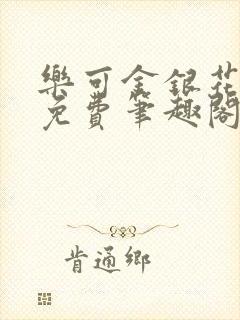 樂可金銀花
免費筆趣閣
肯通鄉